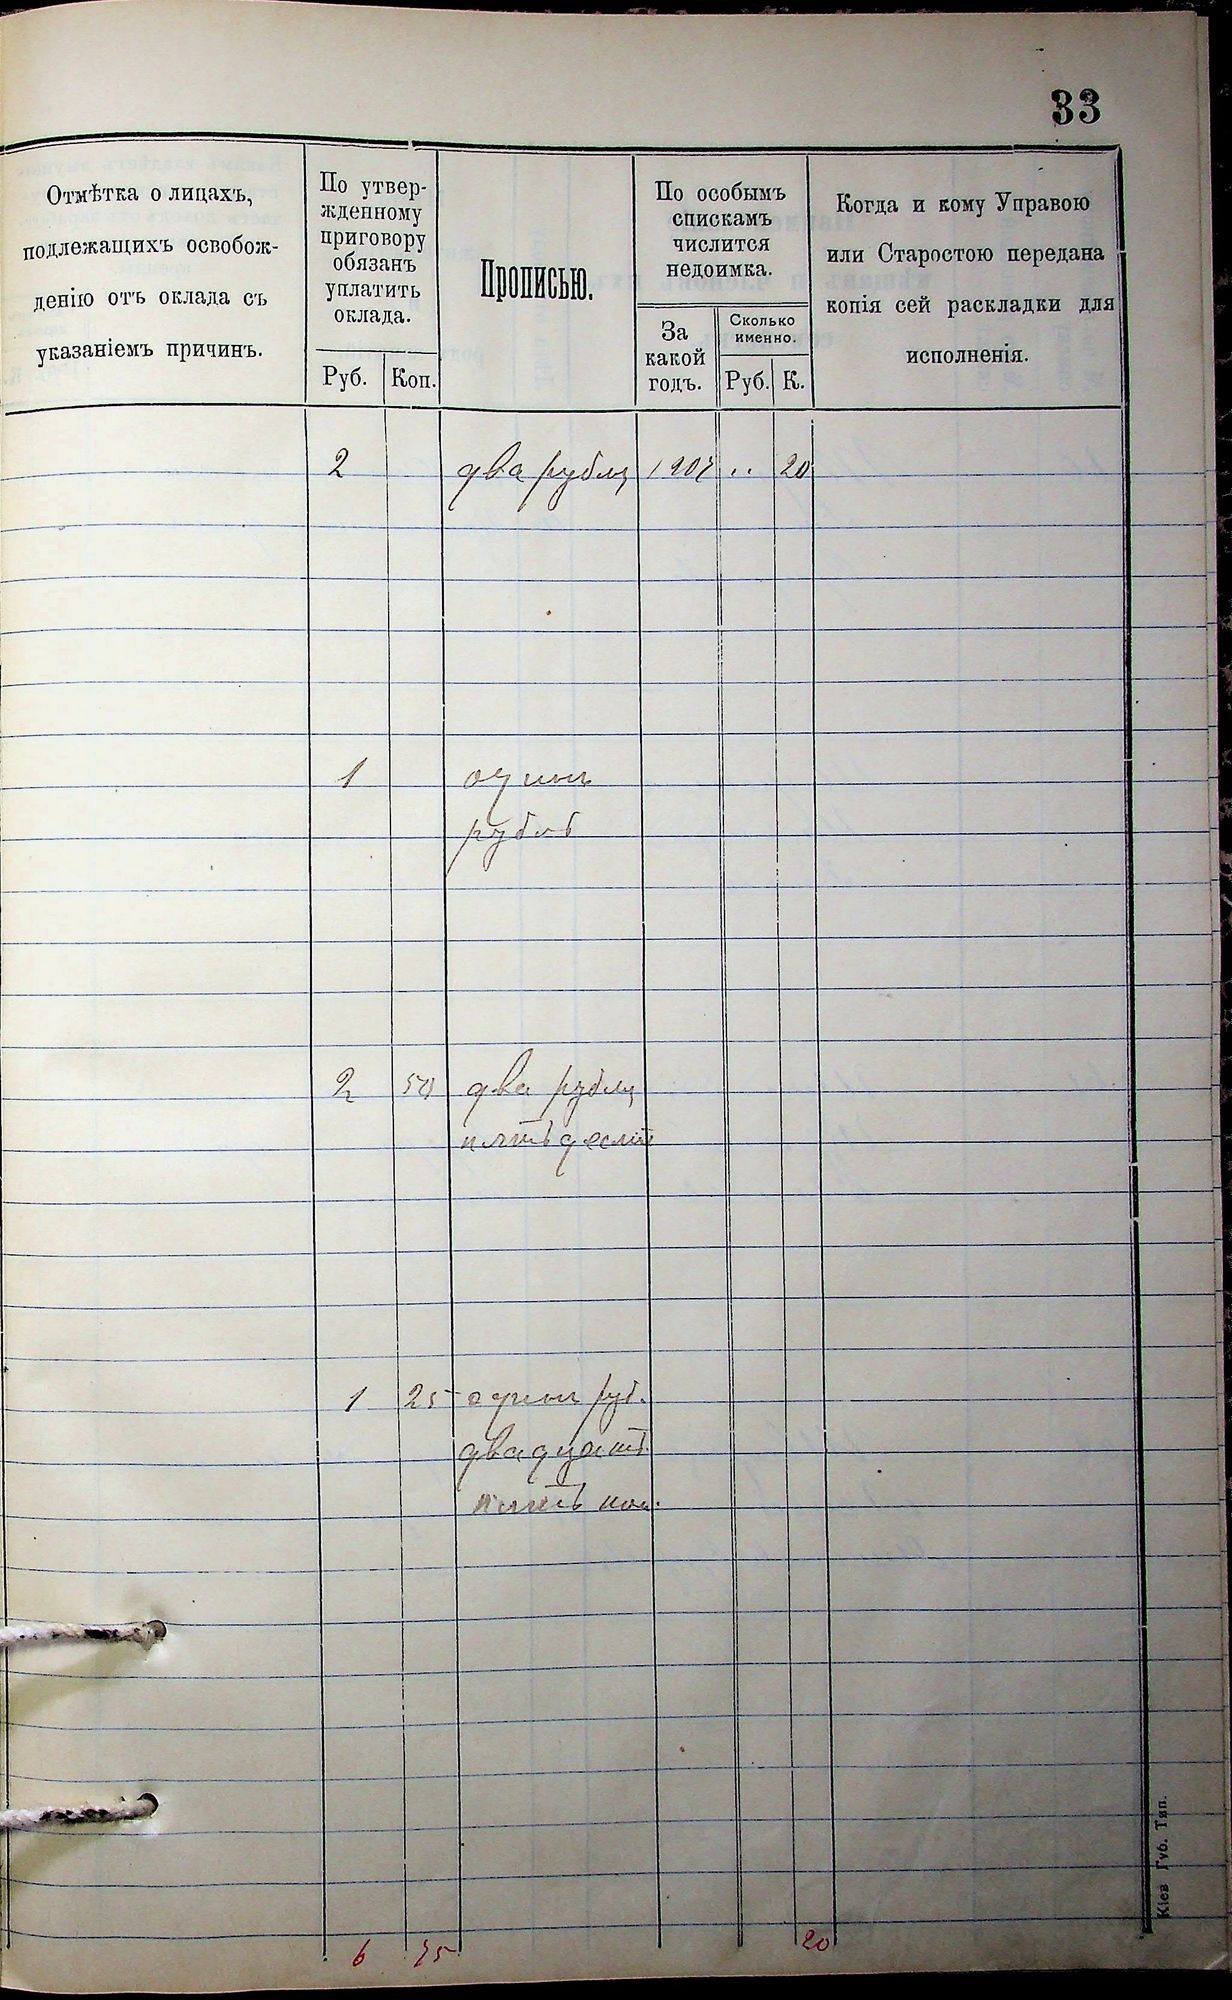 33
Отмѣтка о лицахъ,
подлежащихъ освобож-
денію отъ оклада съ
указаніемъ причинъ.
По утвер-
жденному
приговору
обязанъ
уплатить
оклада.
Руб. Коп.
Прописью.
По особымъ
спискамъ
числится
недоимка.
За
какой
годъ.
Сколько
именно.
Руб. К.
Когда и кому Управою
или Старостою передана
копія сей раскладки для
исполненія.
2 два рубля 1907 .. 20
1 одинъ
рубль
2 50 два рубля
пятьдесят
1 25 один руб.
двадцать
пять коп.
Кіев Губ. Тип.
6 75 20